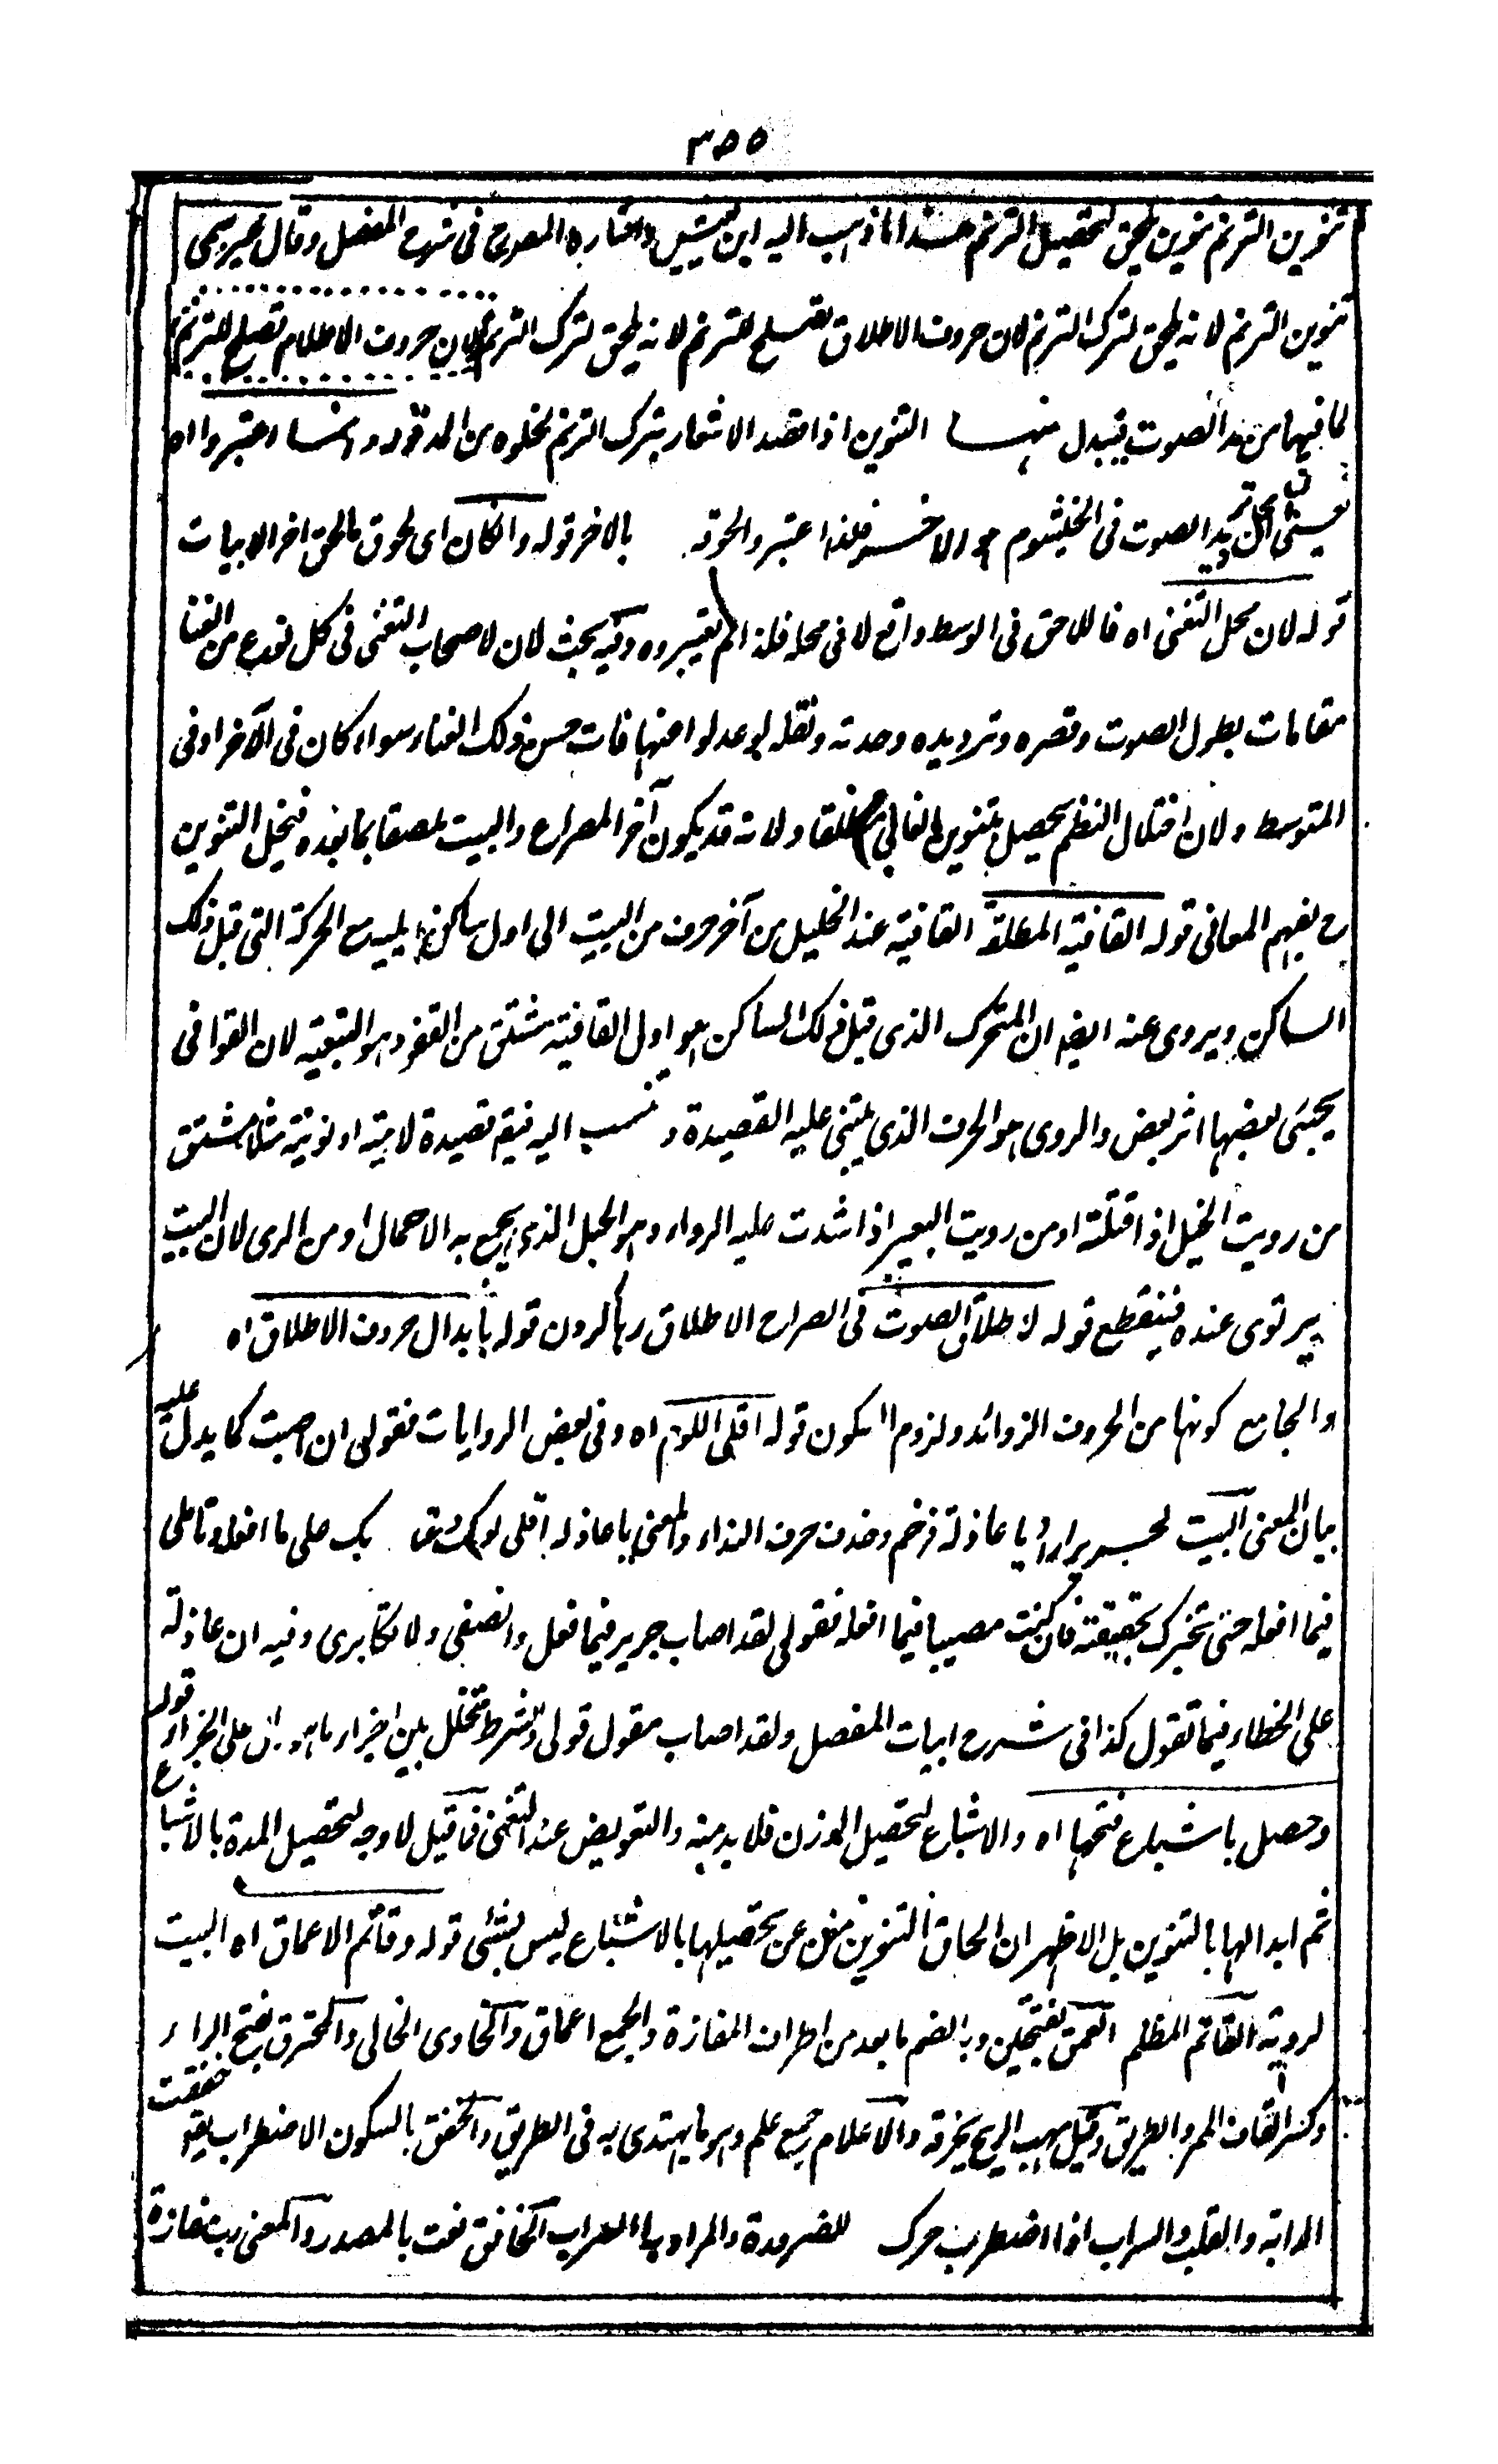 ٣٥٥
تنوين الترنم تنوين يلحق لتحصيل الترنم هذا ما ذهب اليه ابن يعيش واختاره المصرح فى شرح المفصل وقال غيره سمى
تنوين الترنم لانه يلحق لترك الترنم لان حروف الاطلاق تصلح للترنم لانه يلحق لترك الترنم لان حروف الاطلام تصلح للترنم
لما فيها من مد الصوت فيبدل منها التنوين اذا قصد الاشعار بترك الترنم لخلوه من المد قوله وانما اعتبروا اه
يعنى ان محل ترديد الصوت فى الخيشوم هو الاخر فلذا اعتبروا لحوقه بالاخر قوله وان كان اى لحوق ما لحق اخر الابيات
قوله لان محل التغنى اه فاللاحق فى الوسط واقع لا فى محله فلذا لم يعتبروه وفيه بحث لان لاصحاب التغنى فى كل نوع من الغنا
مقامات بطول الصوت وقصره وترديده وحدته وثقله لو عدلوا عنها فات حسن ذلك الغناء سواء كان فى الآخر او فى
المتوسط ولان اختلال النظم يحصل بتنوين الغالى مطلقا ولانه قد يكون آخر المصراع والبيت ملصقا بما بعده فيخل التنوين
ح بفهم المعانى قوله القافية المطلقة القافية عند الخليل من آخر حرف من البيت الى اول ساكن يليه مع الحركة التى قبل ذلك
الساكن ويروى عنه ايضا ان المتحرك الذى قبل ذلك الساكن هو اول القافية مشتق من القفو وهو التبعية لان القوافى
يجيئ بعضها اثر بعض والروى هو الحرف الذى يبتنى عليه القصيدة وتنسب اليه فيقم قصيدة لامية او نونية مثلا مشتق
من رويت الحبل اذا فتلته او من رويت البعير اذا شدت عليه الرواء وهو الحبل الذى يجمع به الاحمال او من الرى لان البيت
يرتوى عنده فينقطع قوله لاطلاق الصوت فى الصراح الاطلاق رها كردن قوله بابدال حروف الاطلاق اه
والجامع كونها من الحروف الزوائد ولزوم السكون قوله اقلى اللوم اه وفى بعض الروايات فقولى ان اصبت كما يدل عليه
بيان المعنى البيت لجرير اراد يا عاذلة فرخم وحذف حرف النداء والمعنى يا عاذلة اقلى لومك وعتابك على ما افعل وتاملى
فيما افعله حتى تخبرك بحقيقته فان كنت مصيبا فيما افعله فقولى لقد اصاب جرير فيما فعل وانصفى ولا تكابرى وفيه ان عاذلة
على الخطاء فيما تقول كذا فى شرح ابيات المفصل ولقد اصاب مقول قولى والشرط متخلل بين اجزاء على الجزاء قوله
وحصل باشباع فتحها اه والاشباع لتحصيل الوزن فلا بد منه والتعويض عند التغنى فما قيل لا وجه لتحصيل المدة بالاشباع
ثم ابدالها بالتنوين بل الاظهر ان الحاق التنوين مغن عن تحصيلها بالاشباع ليس بشئى قوله وقاتم الاعماق اه البيت
لروبة القاتم المظلم العمق بفتحتين وبالضم ما بعد من اطراف المفازة والجمع اعماق والخاوى الخالى والمخترق بفتح الراء
وكسر القاف الممر والطريق وقيل مهب الريح يخرقه والاعلام جمع علم وهو ما يهتدى به فى الطريق والخفق بالسكون الاضطراب يقو خفقت
الدابة والقلب والسراب اذا اضطرب حرك للضرورة والمراد به السراب الخافق نعت بالمصدر والمعنى رب مفازة